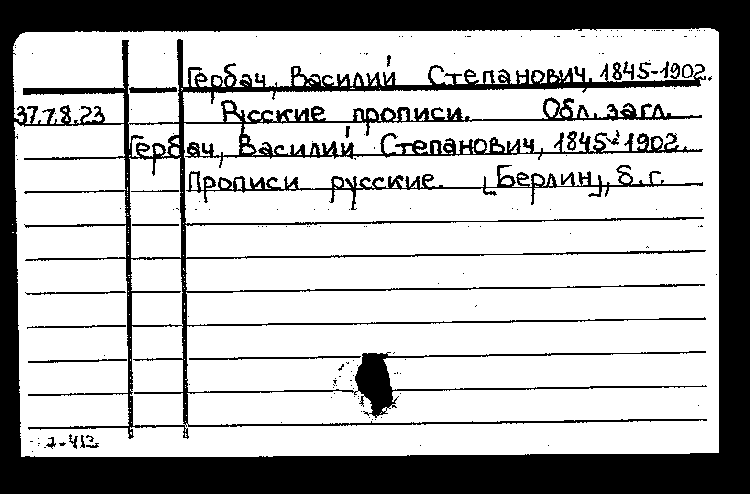 Гербач, Василий Степанович, 1845-1902.
37.7.8.23 Русские прописи. Обл. загл.
Гербач, Василий Степанович, 1845-1902.
Прописи русские. [Берлин], б. г.